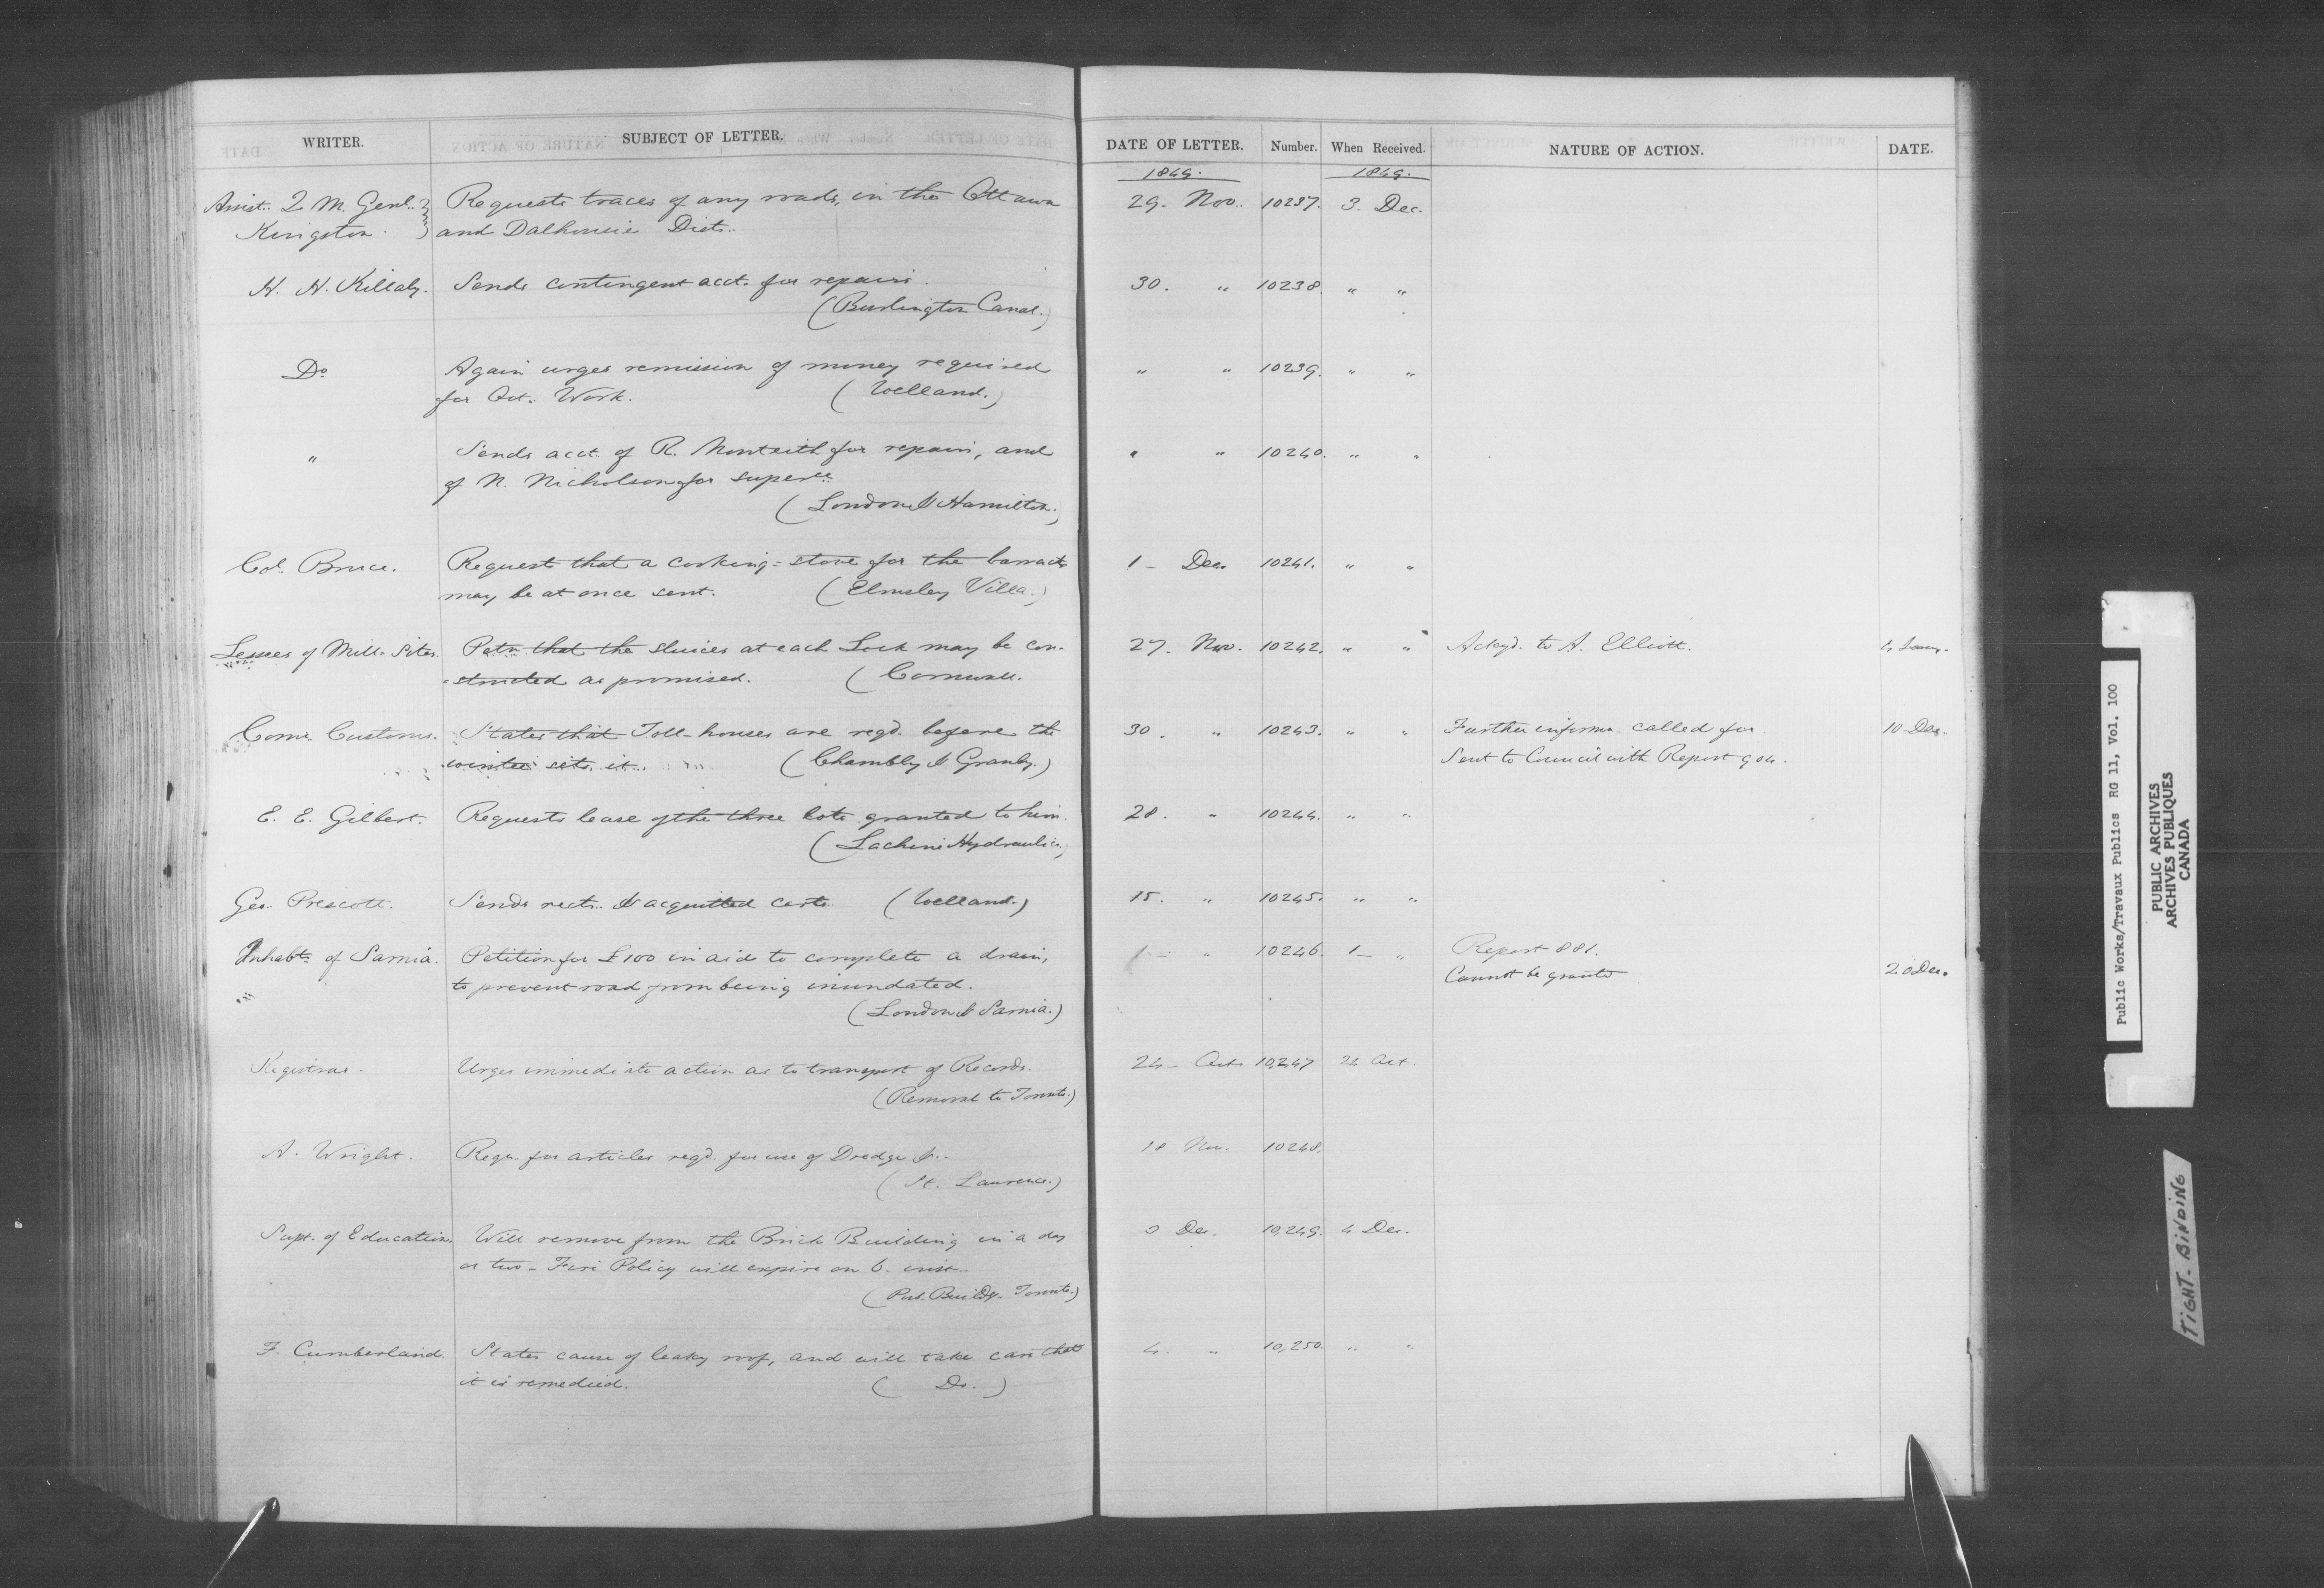 WRITER. SUBJECT OF LETTER. DATE OF LETTER. Number. When Received. NATURE OF ACTION. DATE.
1849. 1849.
Assist. Q. M. Genl. Requests traces of any roads, in the Ottawa 29. Nov. 10237. 3. Dec.
Kingston. and Dalhousie Dists.
H. H. Killaly. Sends contingent acct. for repairs. 30. " 10238. " "
(Burlington Canal.)
Do Again urges remission of money required " " 10239. " "
for Oct. Work. (Welland.)
" Sends acct. of R. Monteith for repairs, and " " 10240. " "
of N. Nicholson for superce.
(London & Hamilton.)
Col. Bruce. Request that a cooking-stove for the barracks 1- Dec. 10241. " "
may be at once sent. (Elmsley Villa.)
Lessees of Mill-Sites. Petn that the sluices at each Lock may be con- 27. Nov. 10242. " " Ackgd. to A. Elliott. 4 Jany.
-structed as promised. (Cornwall.
Comr. Customs. States that Toll-houses are reqd. before the 30. " 10243. " " Further informn. called for 10 Dec.
winter sets in. (Chambly & Granby.) Sent to Council with Report 904.
E. E. Gilbert. Requests lease of the three lots granted to him. 28. " 10244. " "
(Lachine Hydraulic.)
Geo. Prescott. Sends rects. & acquitted certs. (Welland.) 15. " 10245. " "
Inhabts of Sarnia. Petition for £100 in aid to complete a drain, 1- " 10246. 1- " Report 881.
to prevent road from being inundated. Cannot be granted 20 Dec.
(London & Sarnia.)
Registrar. Urges immediate action as to transport of Records. 24- Oct. 10,247 24 Oct.
(Removal to Toronto.)
A. Wright. Requn. for articles reqd. for use of Dredge &c. 18 Nov. 10248.
(St. Laurence.)
Supt. of Education. Will remove from the Brick Building in a day Dec. 10,249. 4 Dec.
or two - Fire Policy will expire on 6. inst.
(Pub. Buildgs. Toronto.)
F. Cumberland. States cause of leaky roof, and will take care that 4. " 10,250. " "
it is remedied. (Do.)
Public Works/Travaux Publics RG 11, Vol. 100
PUBLIC ARCHIVES
ARCHIVES PUBLIQUES
CANADA
TIGHT-BINDING